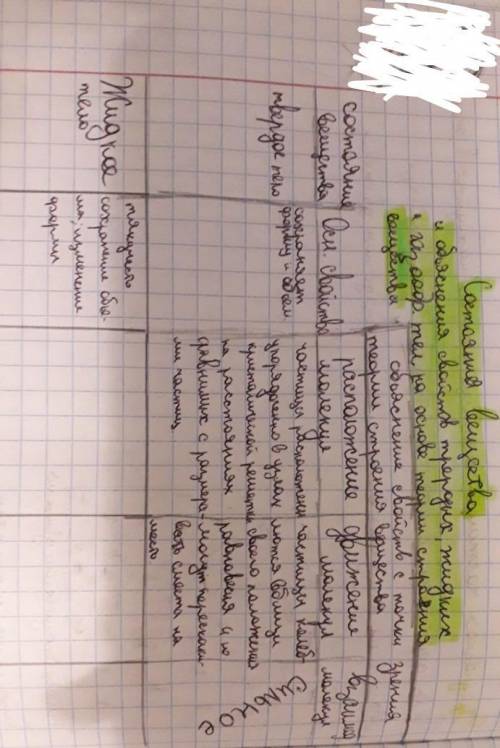 Состояния вещества
и объяснения свойств твердых, жидких
и газообр. тел на основе теории строения
вещества.
состояние
вещества
Осн. свойства
объяснение свойств с точки зрения
теории строения вещества
расположение
молекул
движение
молекул
взаимод
молекул
твердое тело
сохраняет
форму и объем
частицы расположены
упорядоченно в узлах
кристаллической решетки
на расстояниях
сравнимых с размера-
ми частиц
частицы колеб-
лются вблизи
своего положения
равновесия и не
могут перескаки-
вать с места на
место
сильное
Жидкое
тело
текучесть
сохранение объе-
ма, изменение
формы